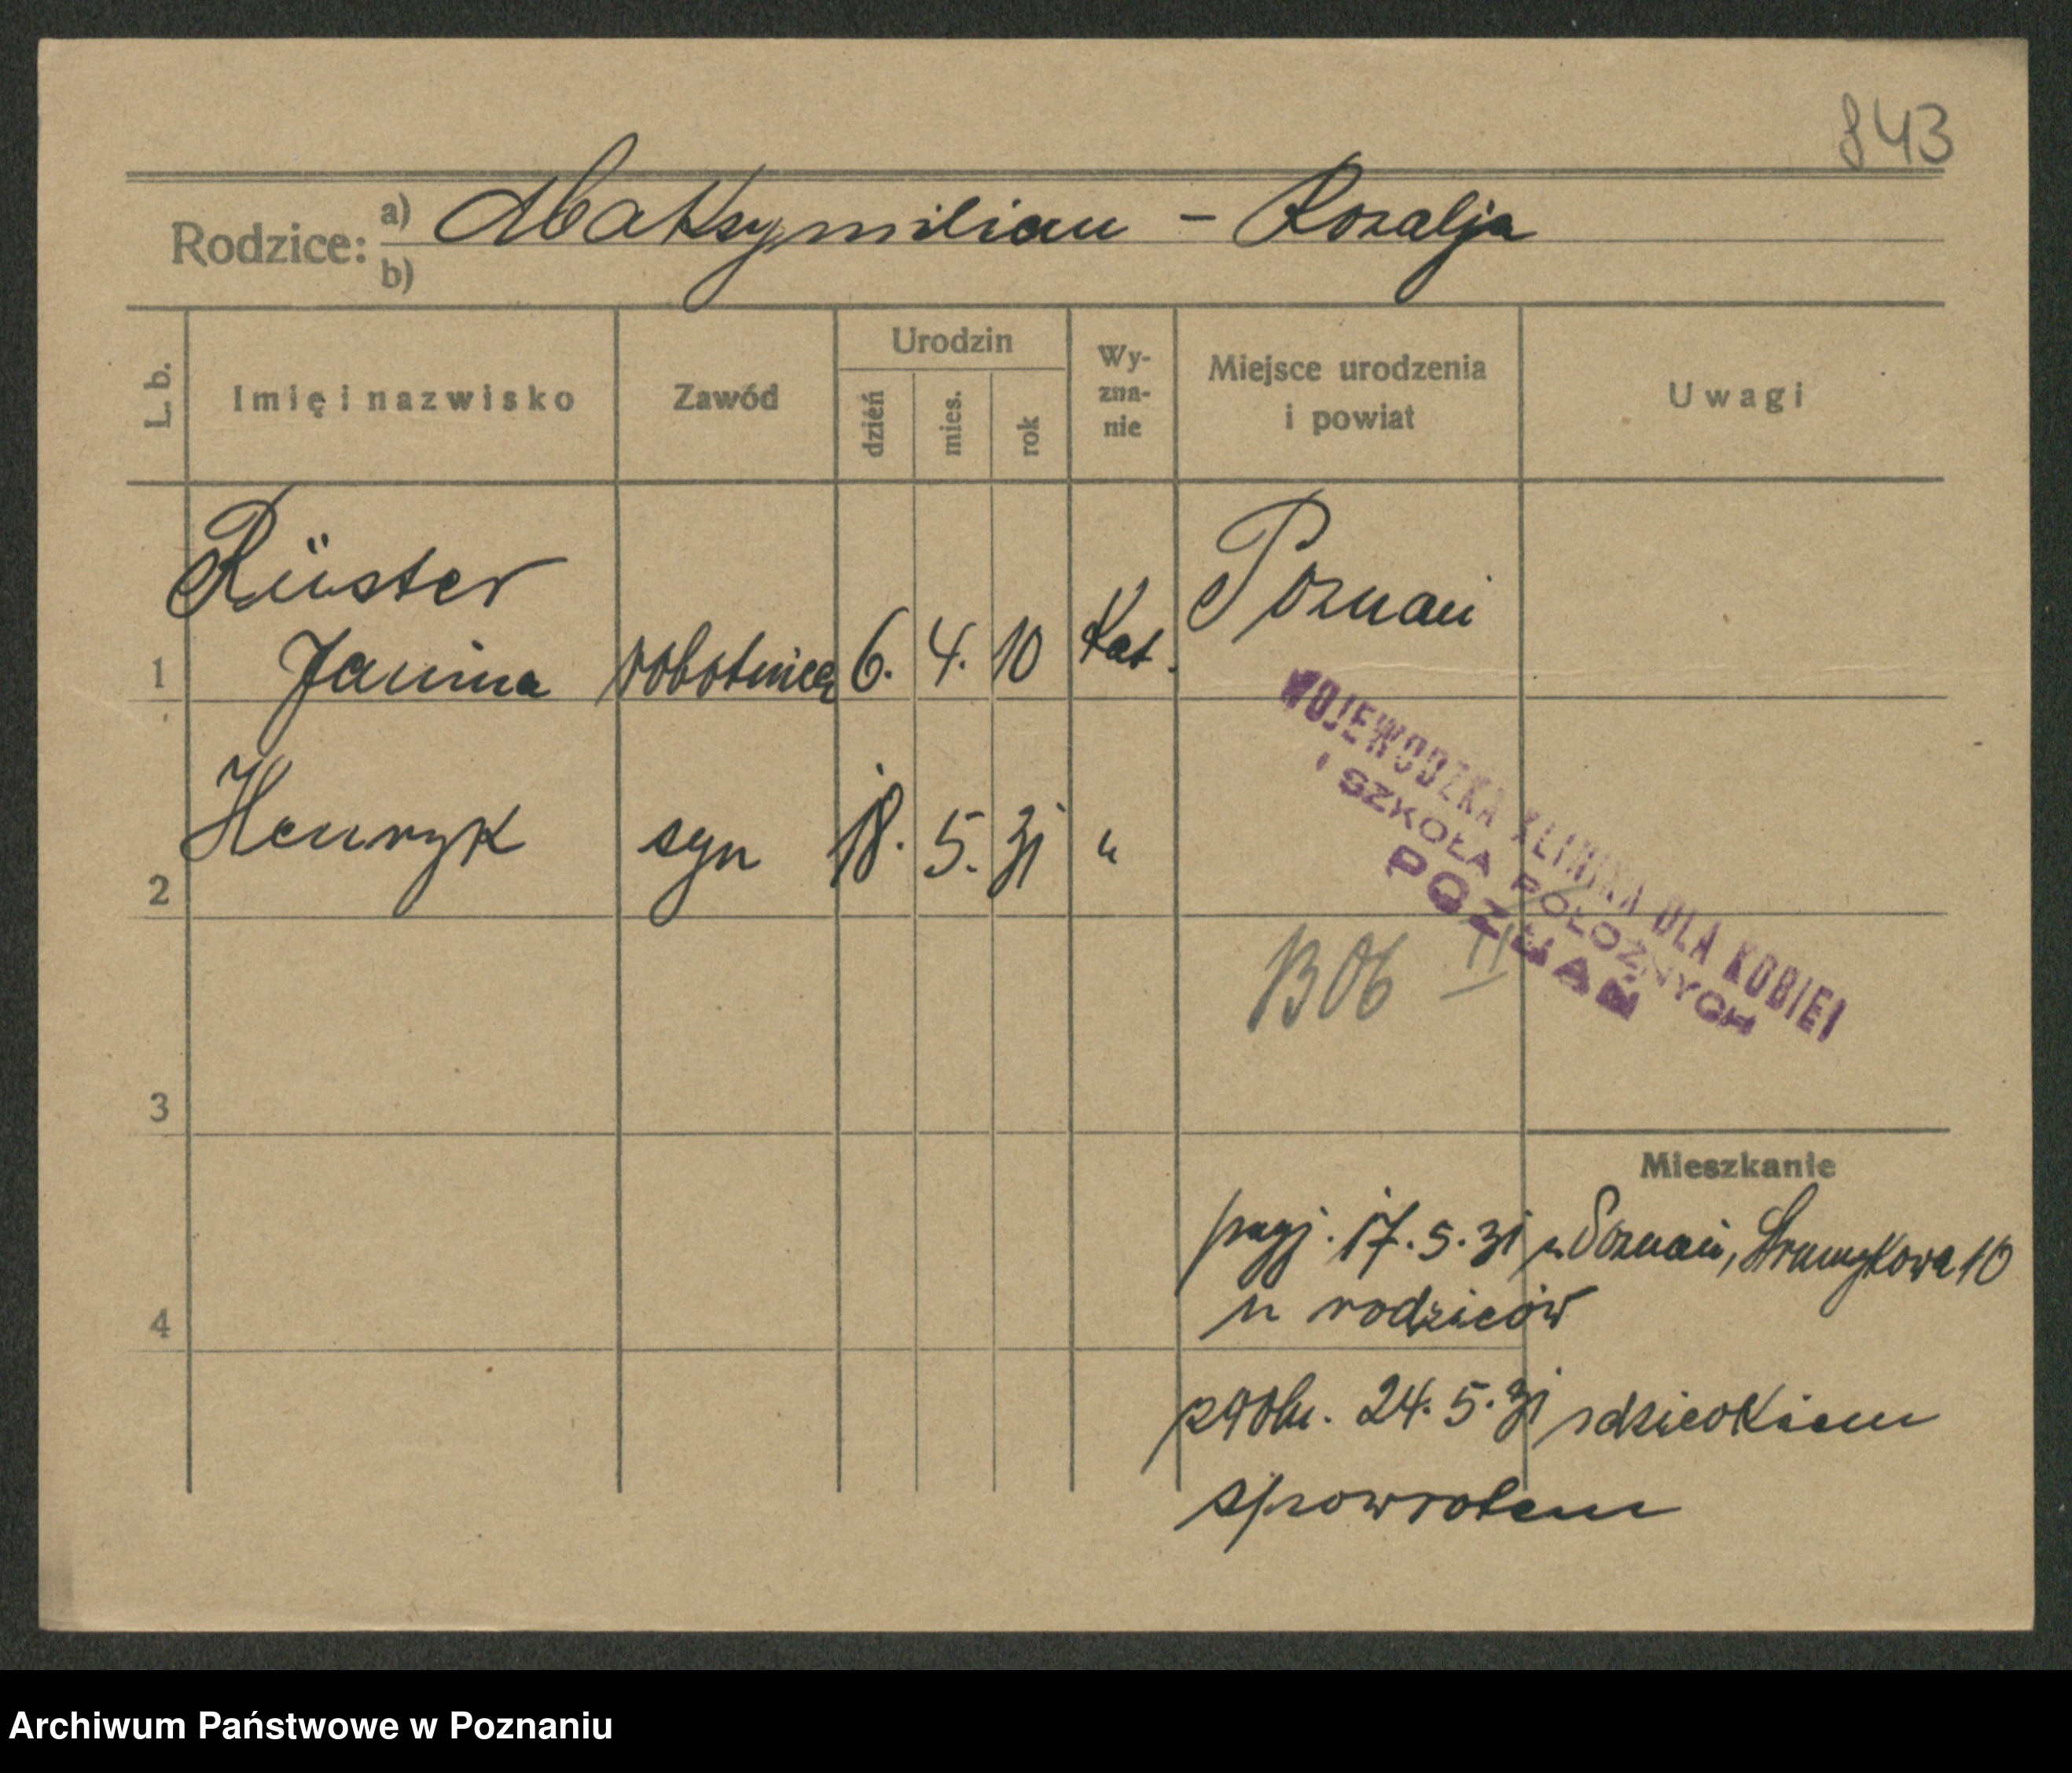 843
Rodzice: a) Maksymilian - Rozalja
b)
L. b. Imię i nazwisko Zawód Urodzin dzień mies. rok Wy-zna-nie Miejsce urodzenia i powiat Uwagi
Rüster Poznań
1 Janina robotnica 6. 4. 10 Kat.
2 Henryk syn 18. 5. 31 "
WOJEWÓDZKA KLINIKA DLA KOBIET
I SZKOŁA POŁOŻNYCH
POZNAŃ
II
3
Mieszkanie
4
przyj. 17.5.31 z Poznań, Strumykowa 10
u rodziców
24.5.31 z dzieckiem
spowrotem
Archiwum Państwowe w Poznaniu